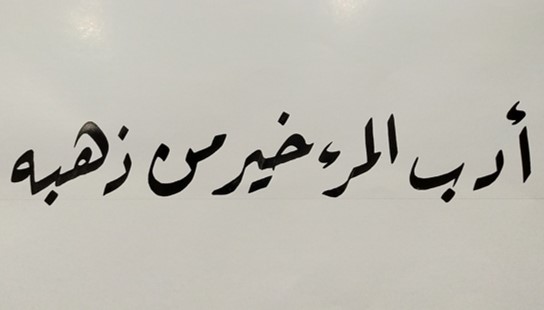 أدب المرء خير من ذهبه